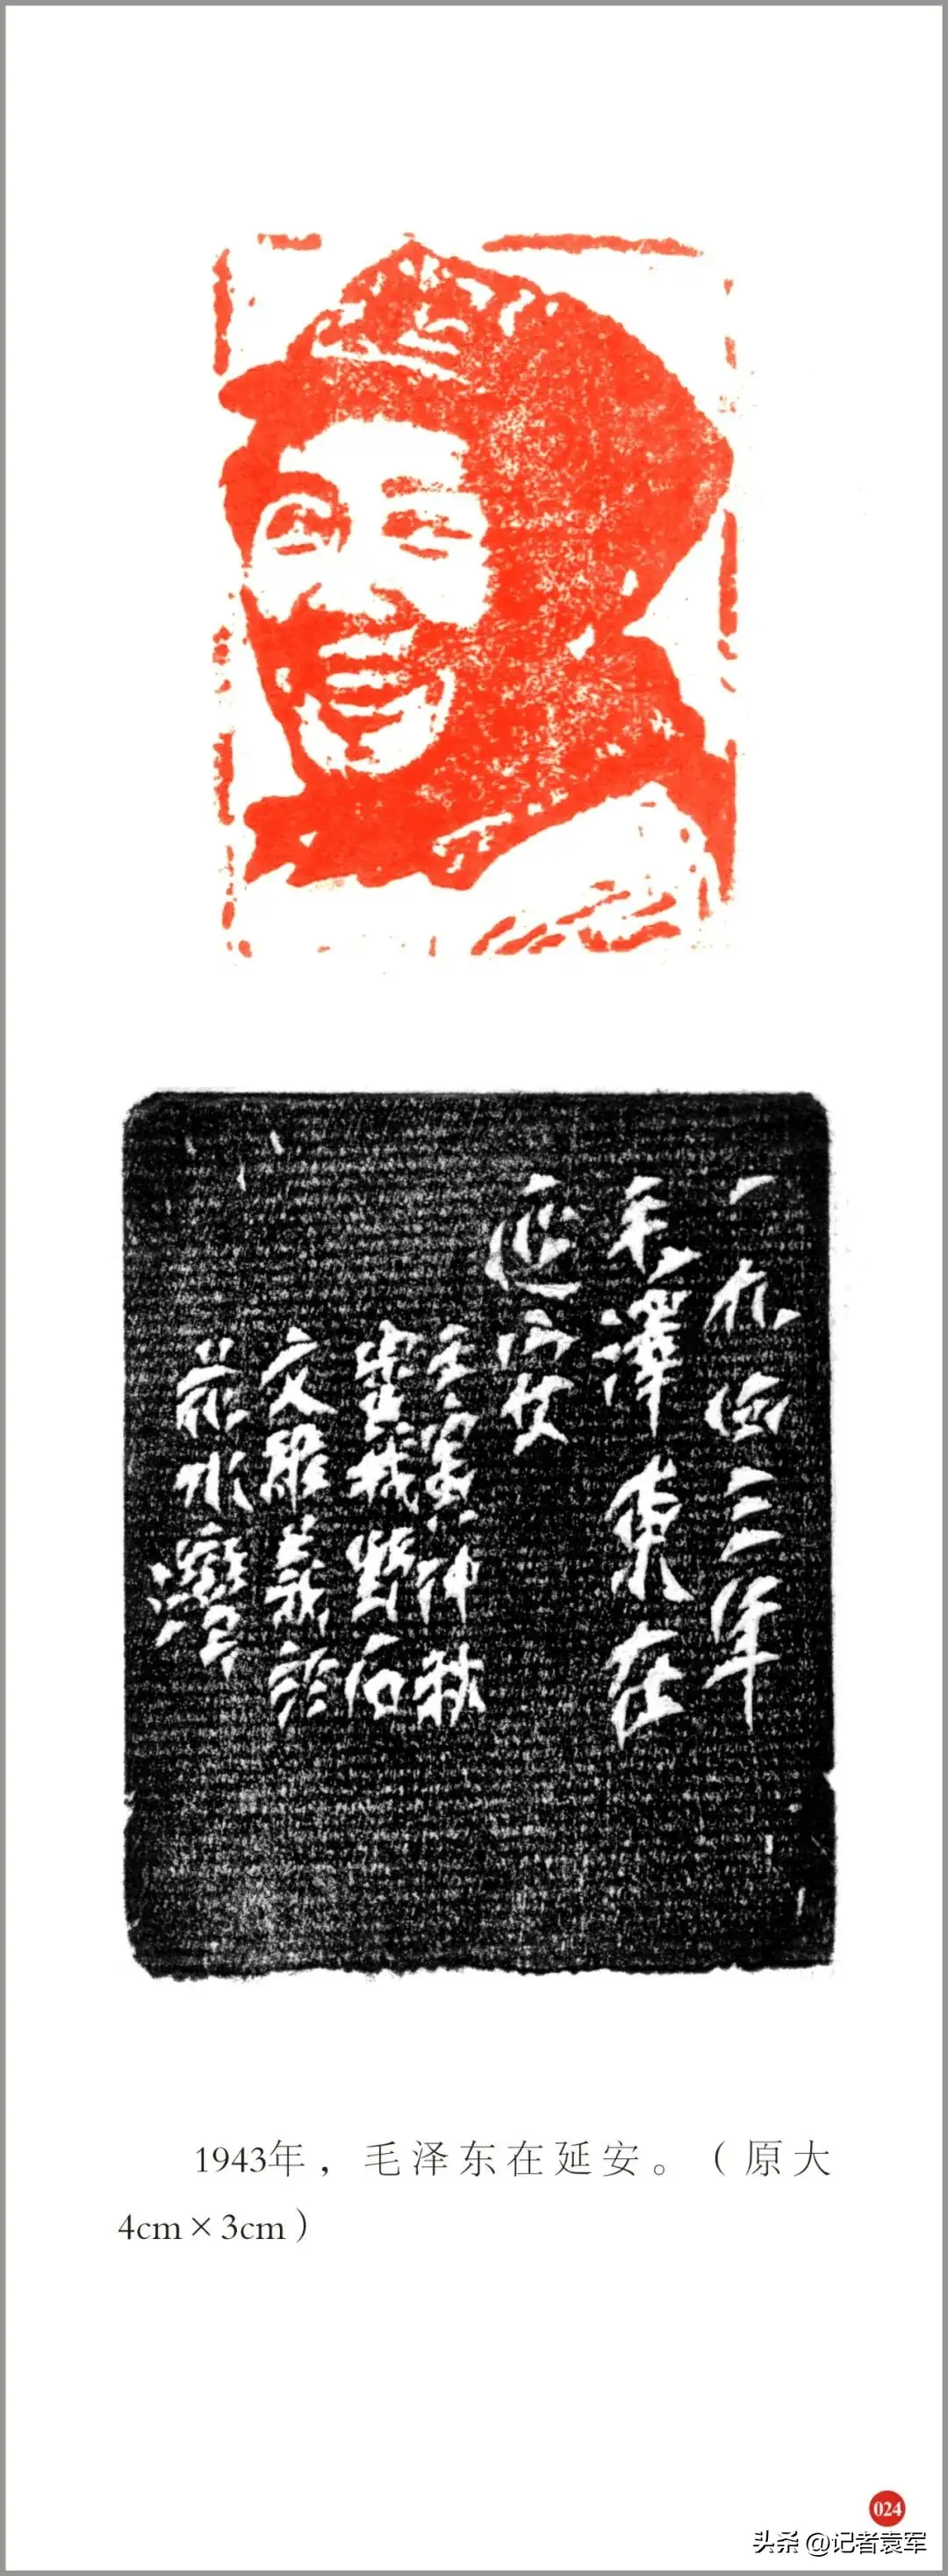 一九四三年
毛澤東在
延安
壬寅仲秋
蜀城野石
文雕義於
荻水灣
1943年，毛泽东在延安。（原大
4cm×3cm）
024
头条 @记者袁军